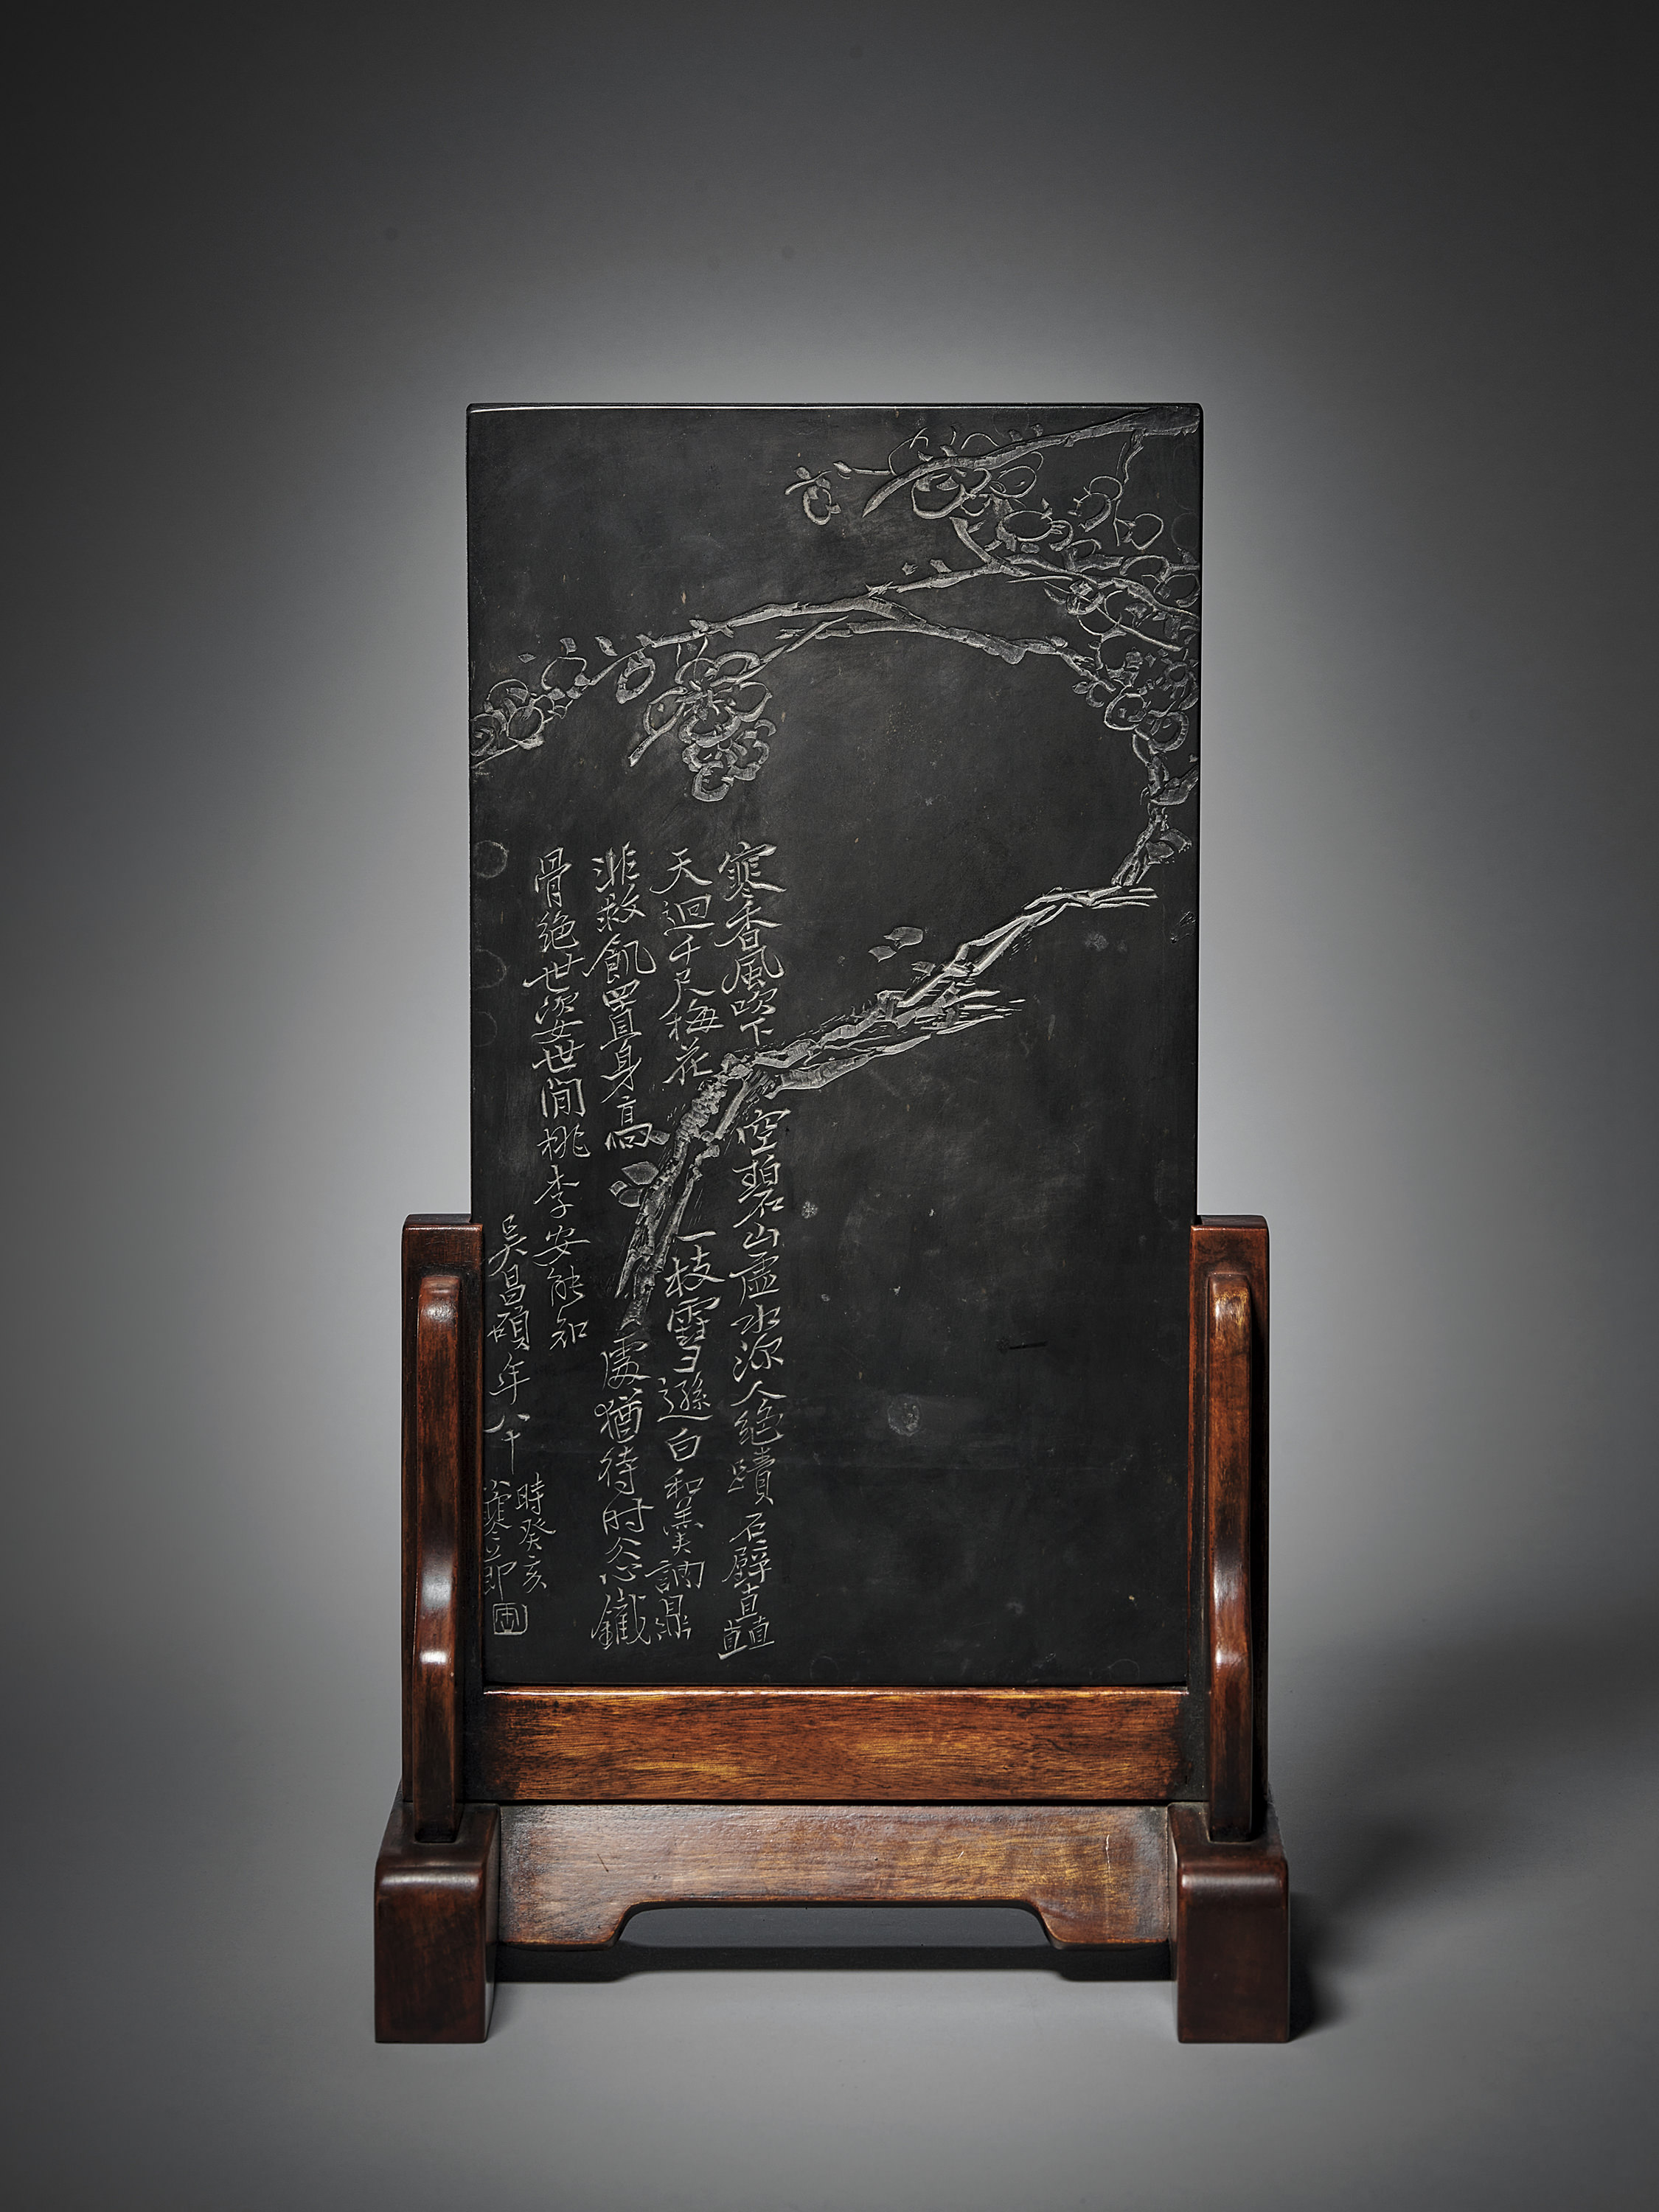 寒香風吹下空碧山虛水深人絶蹟石壁矗
天迴千尺梅花一枝雪遜白和羹調鼎
非救飢置身高處猶待时仌心鐵
骨絶世姿世間桃李安能知
吳昌碩年八十
時癸亥
寒節